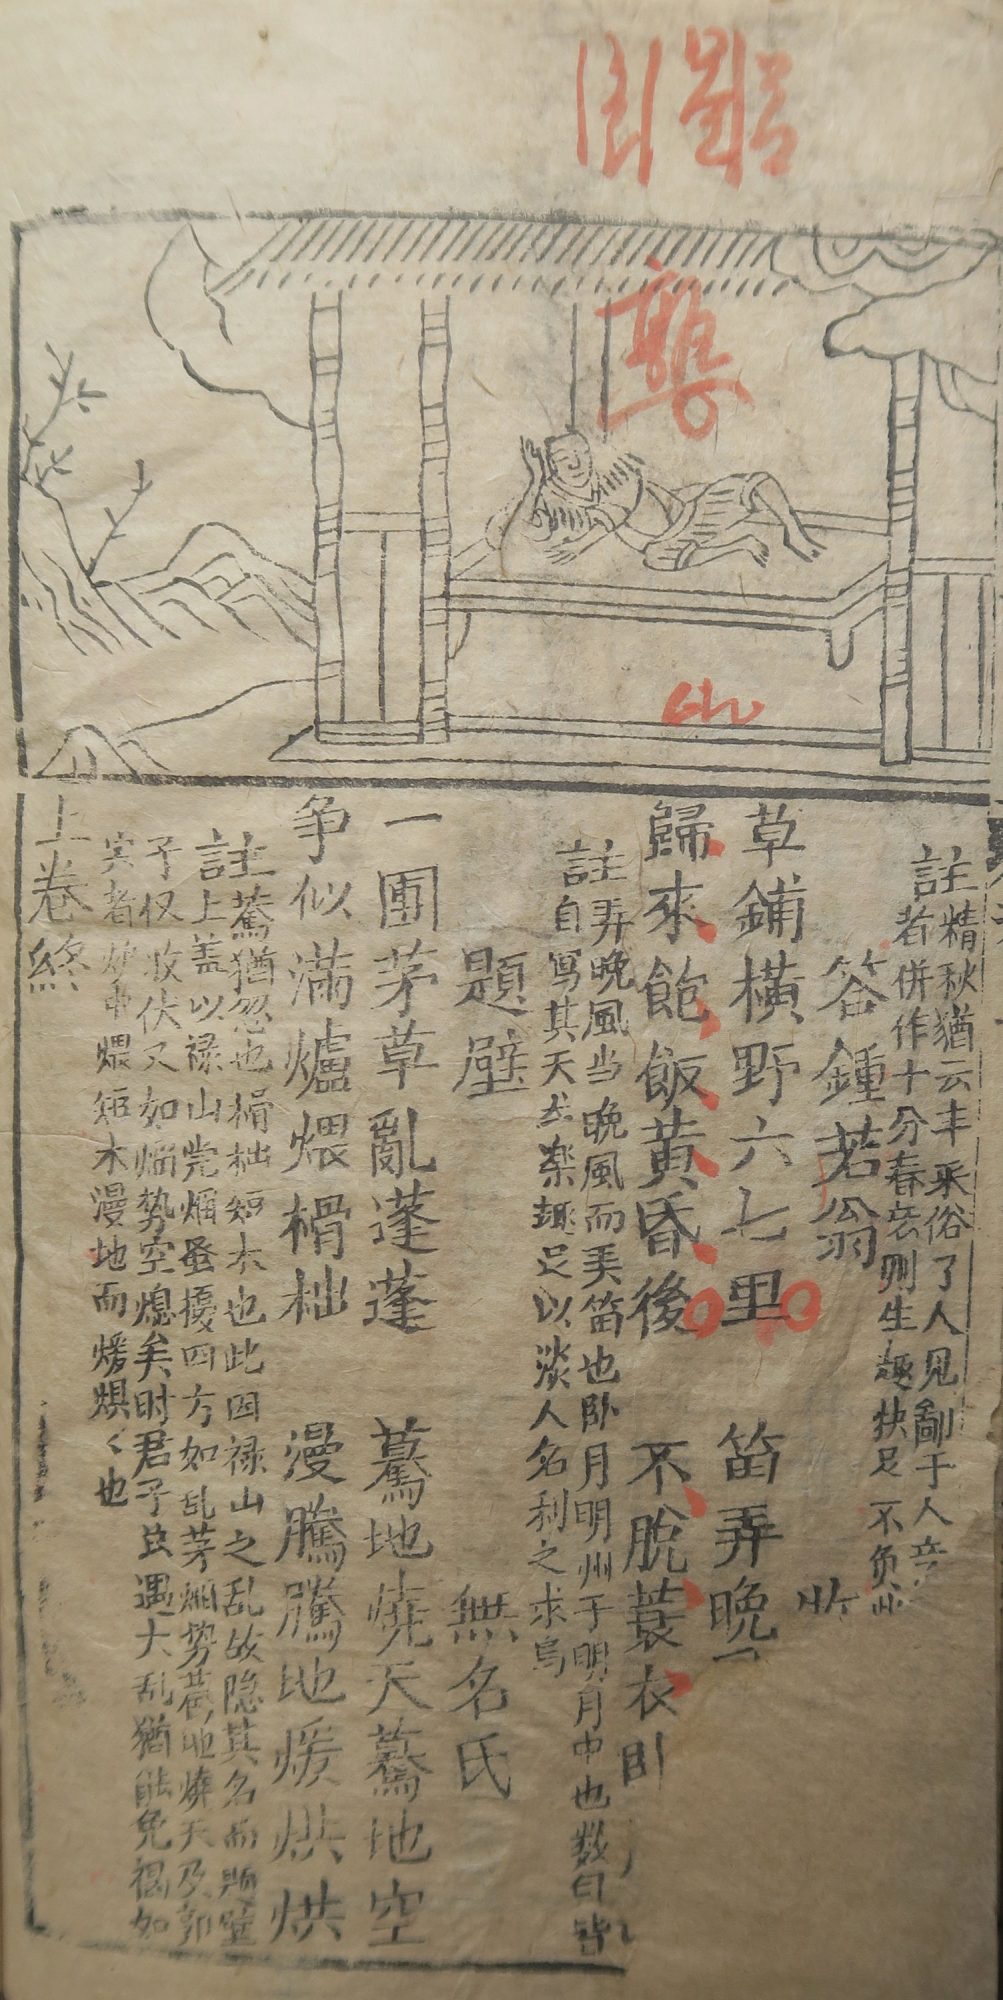 註精秋猶云丰采俗了人見劚于人立
者併作十分春色則生趣抉足不負
答鍾若翁
牧
草鋪橫野六七里
笛弄晚
歸來飽飯黃昏後
不脫蓑衣臥
註弄晚風当晚風而美笛也卧月明州于明月中也数曰皆
自寫其天然楽趣足以淡人名利之求烏
題壁
無名氏
一團茅草亂蓬蓬
驀地燒天驀地空
争似滿爐煨榾柮
漫騰騰地煖烘烘
註驀猶忽也榾柮短木也此因禄山之乱故隐其名而題壁
上盖以禄山党烟蚤擾四方如乱茅烟势驀地燒天及郭
子仪收伏又如烟势空熄矣时君子虽遇大乱猶能免禍如
炉中煨短木漫地而煖烘〻也
上卷終